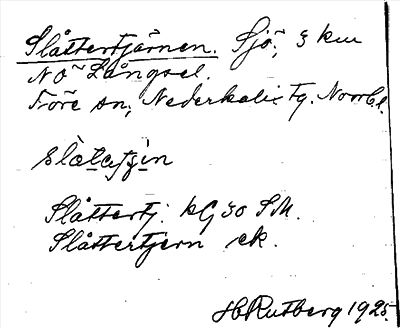 Slåttertjärnen. Sjö, 3 km
NO Långsel.
Töre sn, Nederkalix tg. Norrb l.
Slåttertj. kG 30 S.M.
Slåttertjern ek.
H Rutberg 1925.